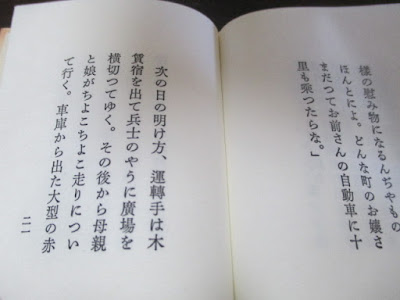 様の慰み物になるんぢやもの
ほんとによ。どんな町のお嬢さ
まだつてお前さんの自動車に十
里も乘つたらな。」
次の日の明け方、運轉手は木
賃宿を出て兵士のやうに廣場を
横切つてゆく。その後から母親
と娘がちよこちよこ走りについ
て行く。車庫から出た大型の赤
二一